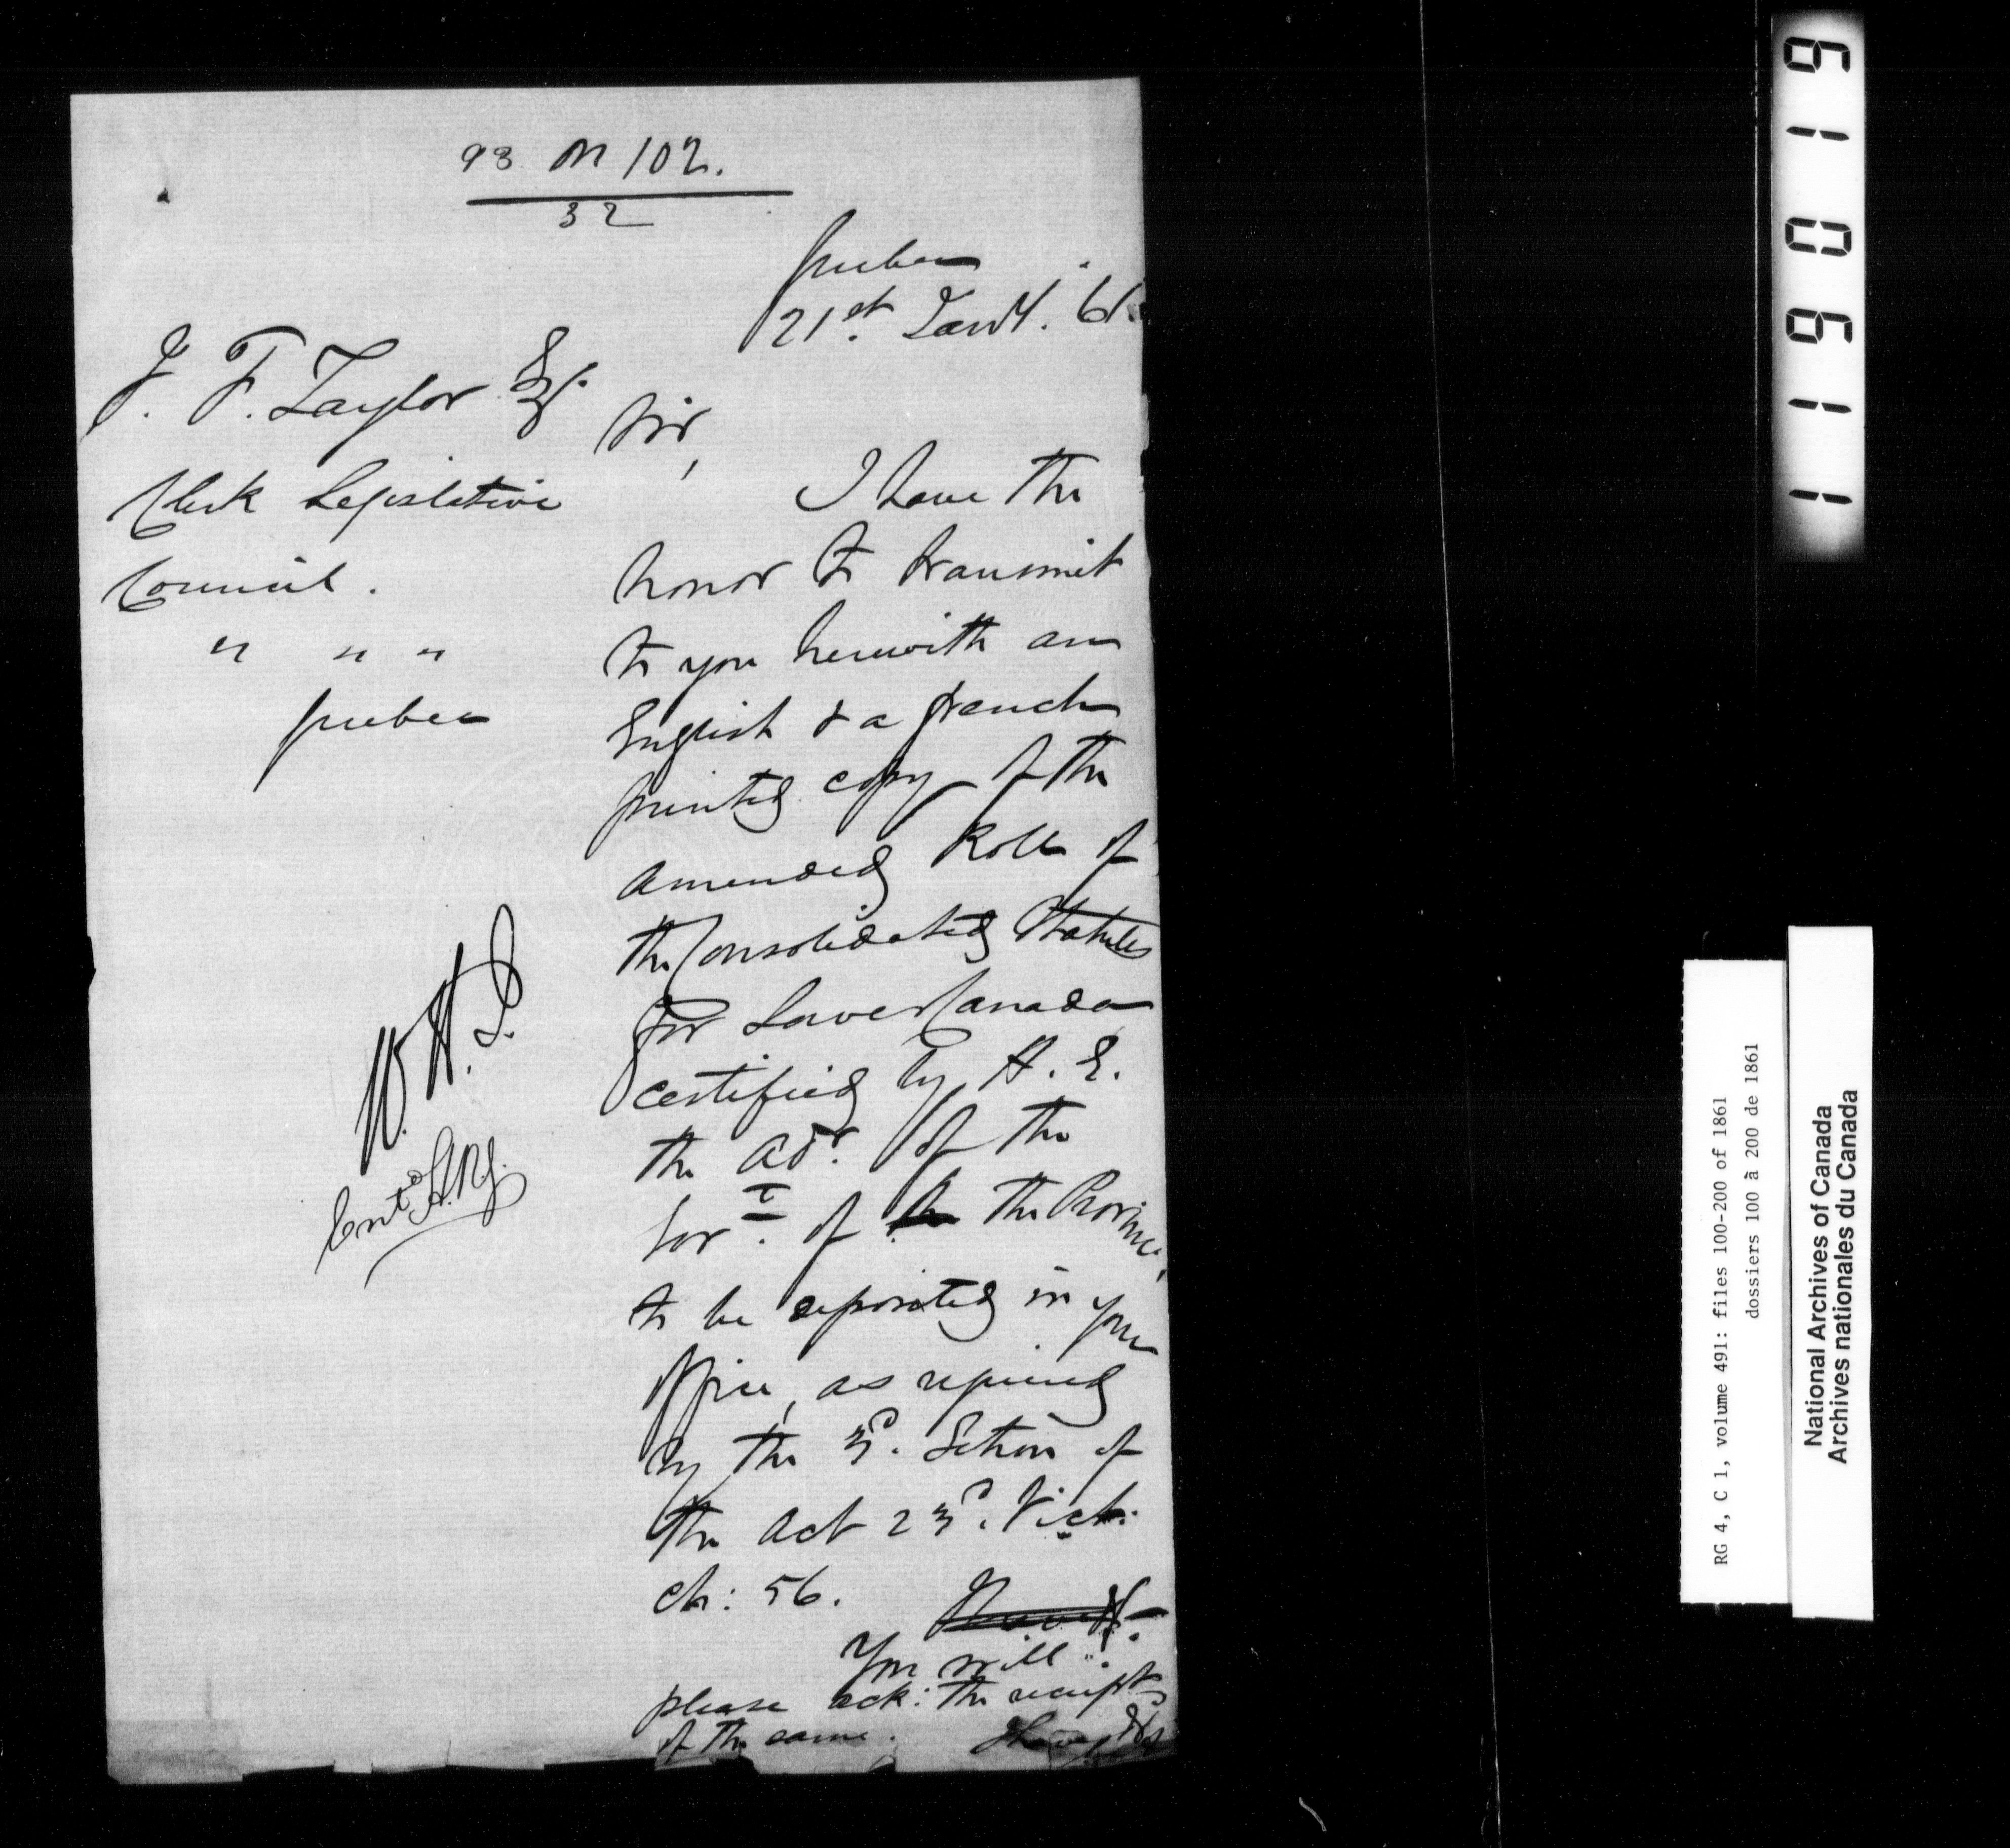 98 M 102.
32
Quebec
21st. Jany. 61.
J. F. Taylor Esq.
Clerk Legislative
Council.
" " "
Quebec
Sir,
I have the
honor to transmit
to you herewith an
English & a French
printed copy of the
amended Roll of
the Consolidated Statutes
for Lower Canada
certified by H. E.
the Adr. of the
Govt. of the Province,
to be deposited in your
Office, as required
by the 3d. Section of
the Act 23d. Vict.
ch: 56.
You will
please ack: the receipt
of the same.
I have &c
W. H.
Entd
119019
RG 4, C 1, volume 491: files 100-200 of 1861
dossiers 100 à 200 de 1861
National Archives of Canada
Archives nationales du Canada